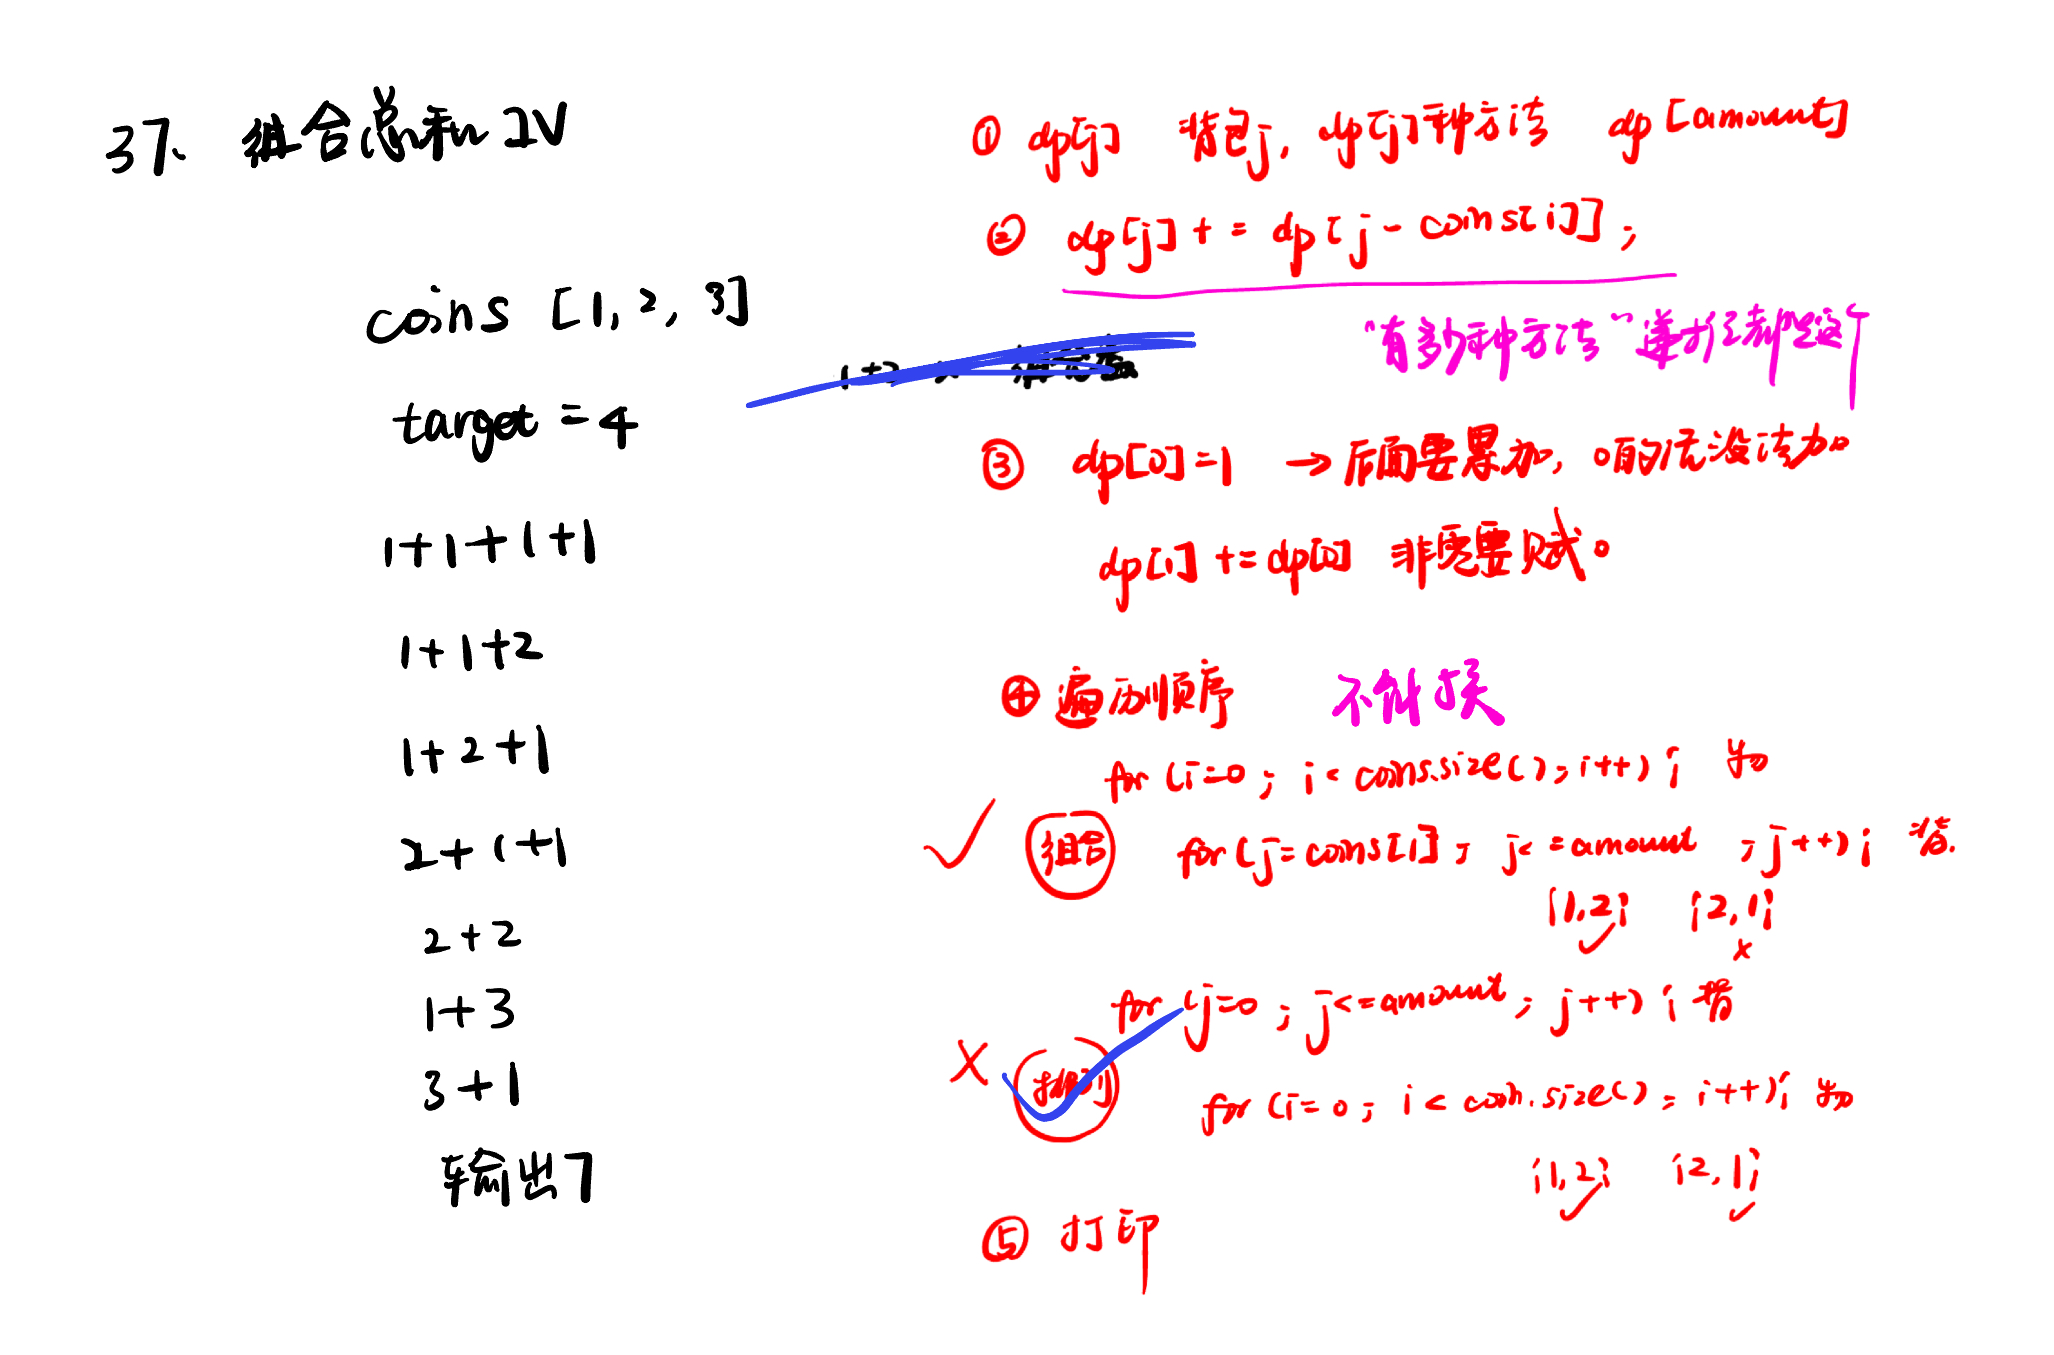 37、组合总和 IV
coins [1, 2, 3]
target = 4
1+1+1+1
1+1+2
1+2+1
2+1+1
2+2
1+3
3+1
输出7
① dp[j] 背包j, dp[j]种方法 dp[amount]
② dp[j] += dp[j-coins[i]];
“有多少种方法”递推都是这个
③ dp[0]=1 → 后面要累加, 0的话没法加。
dp[1] += dp[0] 非零要赋。
④ 遍历顺序 不能换
for (i=0; i<coins.size(); i++) { 物
组合 for (j=coins[i]; j<=amount ; j++) { 背.
{1,2} {2,1}
x
for (j=0; j<=amount; j++) { 背
X 排列
for (i=0; i<coin.size(); i++) { 物
{1,2} {2,1}
⑤ 打印